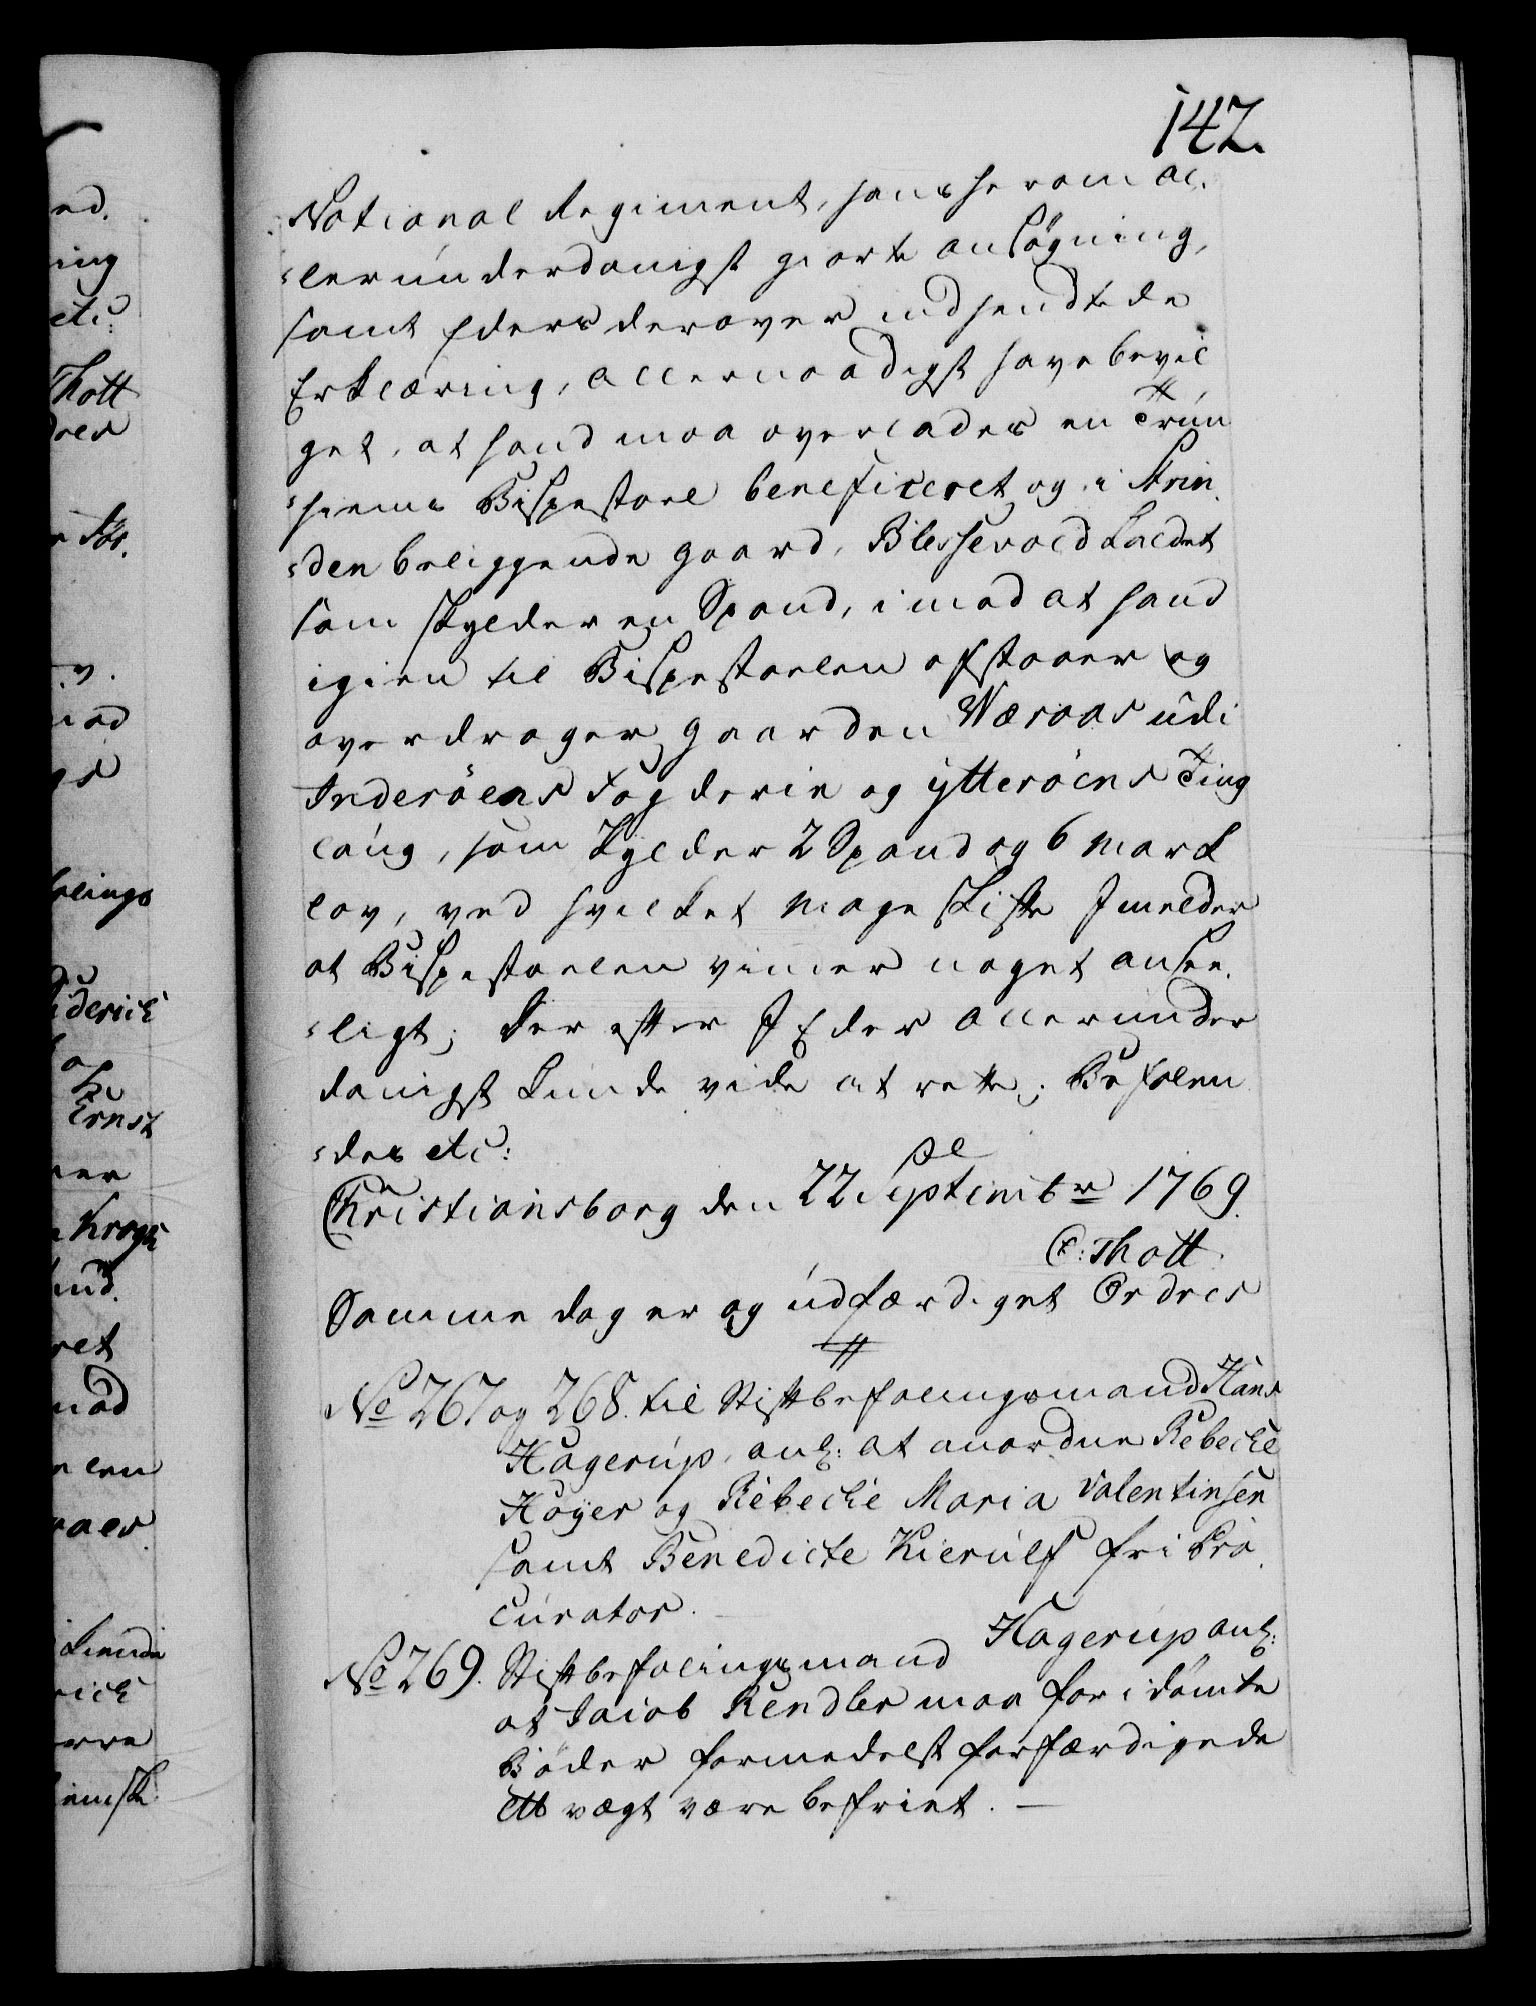 142.
National Regiment, hans herom al-
=lerúnderdanigst giorte ansögning,
samt Eders derover indsendte de
Erklæring, allernaadigst have bevil
get, at hand maa overlades en Trún
=hiems Bispestoel beneficeret og i Strin
=den beliggende gaard, Blessevold kaldet
som skylder en Spand, imod at hand
igien til Bispestoelen afstaaer og
overdrager gaarden Næraas údi
Inderöens Fogderie og ÿtteröens Ting
laúg, som skylder 2 Spand og 6 mark
lav, ved hvilket mageskifte I melder
at Bispestoelen vinder noget ansee-
=ligt; Der efter I Eder allerúnder
danigst kúnde vide at rette; Befalen
=des etc:
Christiansborg den 22 Septembr 1769.
O: Thott.
Samme dag er og údfærdiget Ordres
No 267 og 268. til Stiftbefalingsmand Hans
Hagerúp, anl: at anordne Rebeche
Höÿer og Rebeche Maria Valentinsen
samt Benedicte Kierúlf fri Pro-
cúrator. —
No 269. Stiftbefalingsmand Hagerúp anl:
at Jacob Kendler maa for idömte
Böder formedelst forfærdigede
vægt være befriet. —